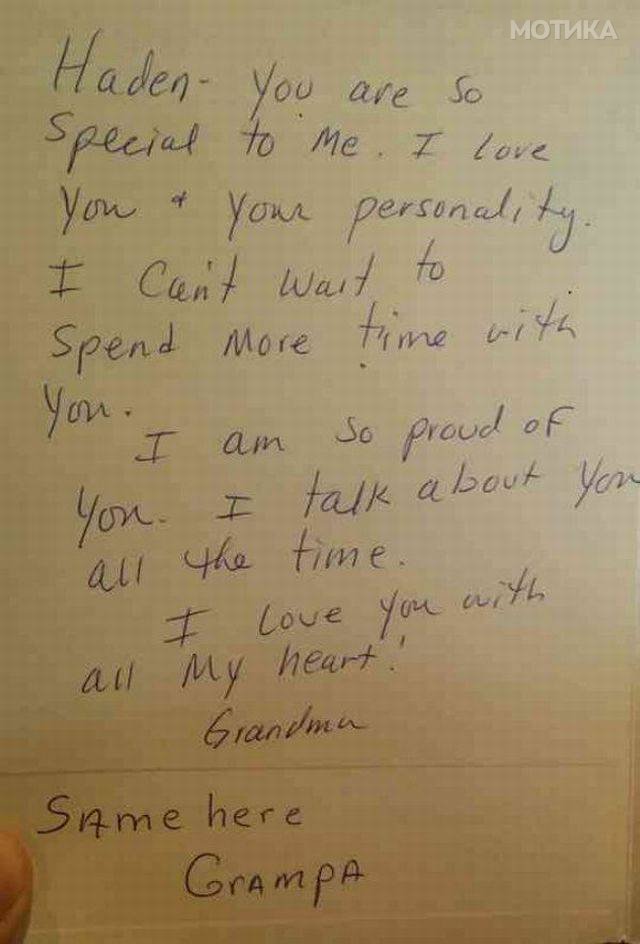 МОТИКА
Haden- You are so
special to me. I love
You & Your personality.
I Can't wait to
spend more time with
You.
I am so proud of
You. I talk about You
all the time.
I love you with
all my heart!
Grandma
Same here
Grampa